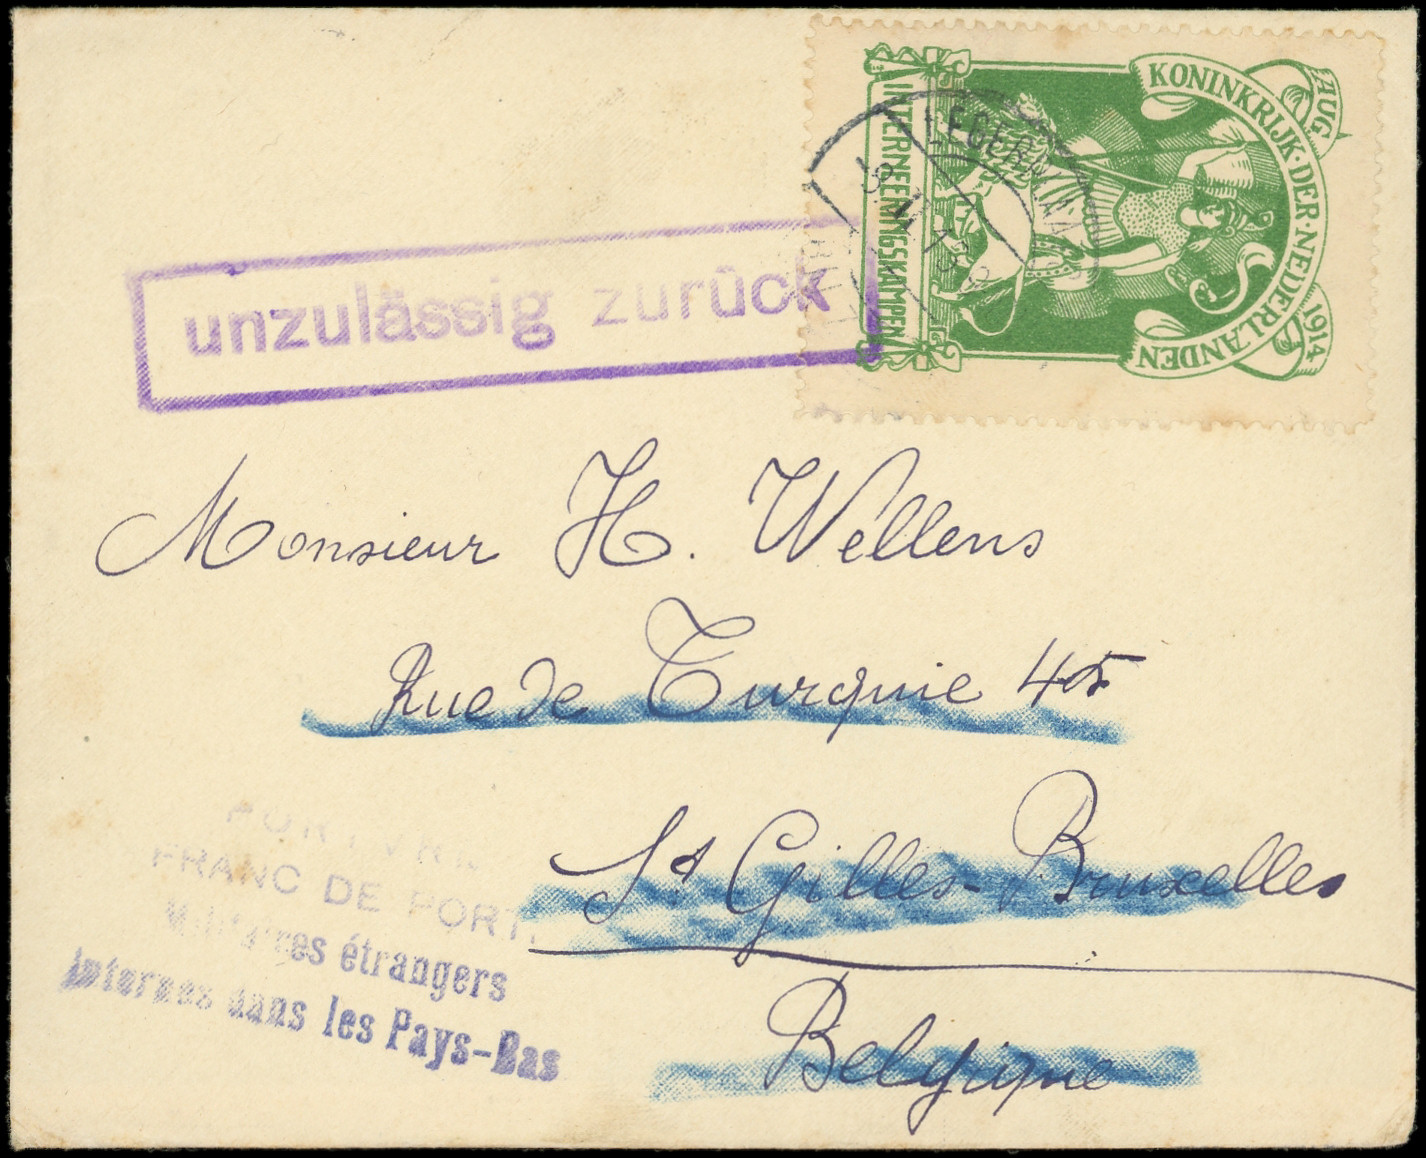 AUG 1914
KONINKRIJK·DER·NEDERLANDEN
INTERNEERINGSKAMPEN
LEGERPLAATS
unzulässig zurück
Monsieur H. Wellens
Rue de Turquie 45
St Gilles-Bruxelles
Belgique
PORTVRIJ
FRANC DE PORT
Militaires étrangers
Internes dans les Pays-Bas